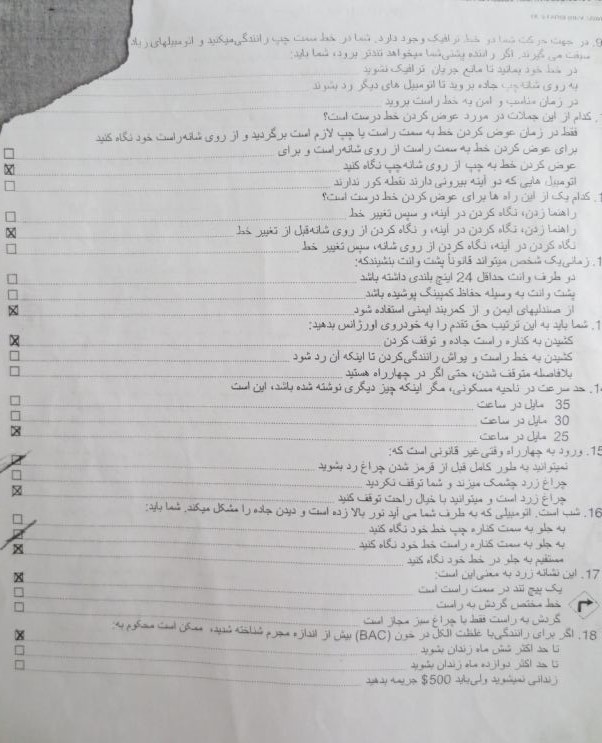 9. در جهت حرکت شما دو خط ترافیک وجود دارد. شما در خط سمت چپ رانندگی میکنید و اتومبیلهای زیاد
سبقت می گیرند. اگر راننده پشتی شما میخواهد تندتر برود، شما باید:
در خط خود بمانید تا مانع جریان ترافیک نشوید
به روی شانه چپ جاده بروید تا اتومبیل های دیگر رد بشوند
در زمان مناسب و امن به خط راست بروید
کدام از این جملات در مورد عوض کردن خط درست است؟
فقط در زمان عوض کردن خط به سمت راست یا چپ لازم است برگردید و از روی شانه راست خود نگاه کنید
برای عوض کردن خط به سمت راست از روی شانه راست و برای
عوض کردن خط به چپ از روی شانه چپ نگاه کنید
اتومبیل هایی که دو آینه بیرونی دارند نقطه کور ندارند
کدام یک از این راه ها برای عوض کردن خط درست است؟
راهنما زدن، نگاه کردن در آینه، و سپس تغییر خط
راهنما زدن، نگاه کردن در آینه، و نگاه کردن از روی شانه قبل از تغییر خط
نگاه کردن در آینه، نگاه کردن از روی شانه، سپس تغییر خط
زمانی یک شخص میتواند قانوناً پشت وانت بنشیند که:
دو طرف وانت حداقل 24 اینچ بلندی داشته باشد
پشت وانت به وسیله حفاظ کمپینگ پوشیده باشد
از صندلیهای ایمن و از کمربند ایمنی استفاده شود
شما باید به این ترتیب حق تقدم را به خودروی اورژانس بدهید:
کشیدن به کناره راست جاده و توقف کردن
کشیدن به خط راست و یواش رانندگی کردن تا اینکه آن رد شود
بلافاصله متوقف شدن، حتی اگر در چهارراه هستید
14. حد سرعت در ناحیه مسکونی، مگر اینکه چیز دیگری نوشته شده باشد، این است
35 مایل در ساعت
30 مایل در ساعت
25 مایل در ساعت
15. ورود به چهارراه وقتی غیر قانونی است که:
نمیتوانید به طور کامل قبل از قرمز شدن چراغ رد بشوید
چراغ زرد چشمک میزند و شما توقف نکردید
چراغ زرد است و میتوانید با خیال راحت توقف کنید
16. شب است. اتومبیلی که به طرف شما می آید نور بالا زده است و دیدن جاده را مشکل میکند. شما باید:
به جلو به سمت کناره چپ خط خود نگاه کنید
به جلو به سمت کناره راست خط خود نگاه کنید
مستقیم به جلو در خط خود نگاه کنید
17. این نشانه زرد به معنی این است:
یک پیچ تند در سمت راست است
خط مختص گردش به راست
گردش به راست فقط با چراغ سبز مجاز است
18. اگر برای رانندگی با غلظت الکل در خون (BAC) بیش از اندازه مجرم شناخته شدید، ممکن است محکوم به:
تا حد اکثر شش ماه زندان بشوید
تا حد اکثر دوازده ماه زندان بشوید
زندانی نمیشوید ولی باید 500$ جریمه بدهید